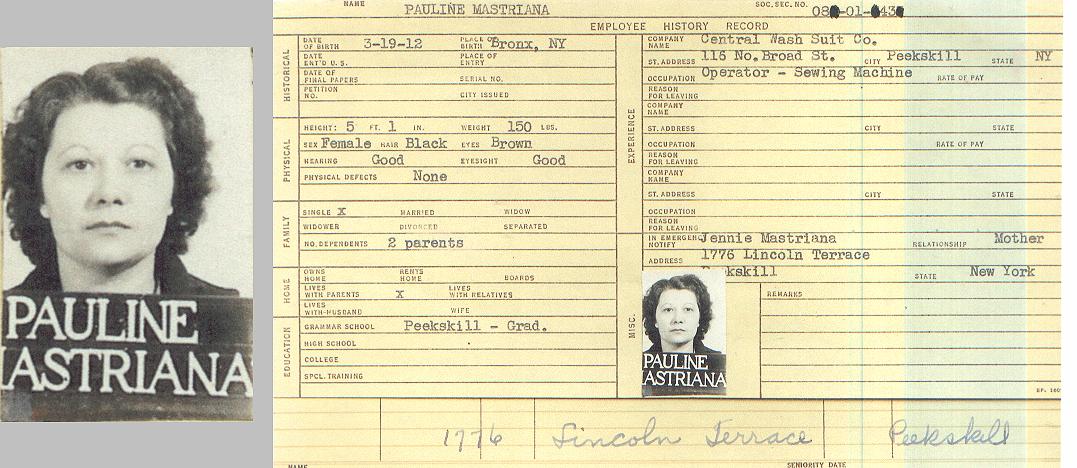 PAULINE
MASTRIANA
NAME PAULINE MASTRIANA SOC. SEC. NO.
EMPLOYEE HISTORY RECORD
HISTORICAL
DATE OF BIRTH 3-19-12 PLACE OF BIRTH Bronx, NY
DATE ENT'D U.S. PLACE OF ENTRY
DATE OF FINAL PAPERS SERIAL NO.
PETITION NO. CITY ISSUED
PHYSICAL
HEIGHT: 5 FT. 1 IN. WEIGHT 150 LBS.
SEX Female HAIR Black EYES Brown
HEARING Good EYESIGHT Good
PHYSICAL DEFECTS None
FAMILY
SINGLE X MARRIED WIDOW
WIDOWER DIVORCED SEPARATED
NO. DEPENDENTS 2 parents
HOME
OWNS HOME RENTS HOME BOARDS
LIVES WITH PARENTS X LIVES WITH RELATIVES
LIVES WITH-HUSBAND WIFE
EDUCATION
GRAMMAR SCHOOL Peekskill - Grad.
HIGH SCHOOL
COLLEGE
SPCL. TRAINING
EXPERIENCE
COMPANY NAME Central Wash Suit Co.
ST. ADDRESS 116 No. Broad St. CITY Peekskill STATE NY
OCCUPATION Operator - Sewing Machine RATE OF PAY
REASON FOR LEAVING
COMPANY NAME
ST. ADDRESS CITY STATE
OCCUPATION RATE OF PAY
REASON FOR LEAVING
COMPANY NAME
ST. ADDRESS CITY STATE
OCCUPATION
REASON FOR LEAVING
MISC.
IN EMERGENCY NOTIFY Jennie Mastriana RELATIONSHIP Mother
ADDRESS 1776 Lincoln Terrace
Peekskill STATE New York
REMARKS
PAULINE
MASTRIANA
1776 Lincoln Terrace Peekskill
NAME SENIORITY DATE